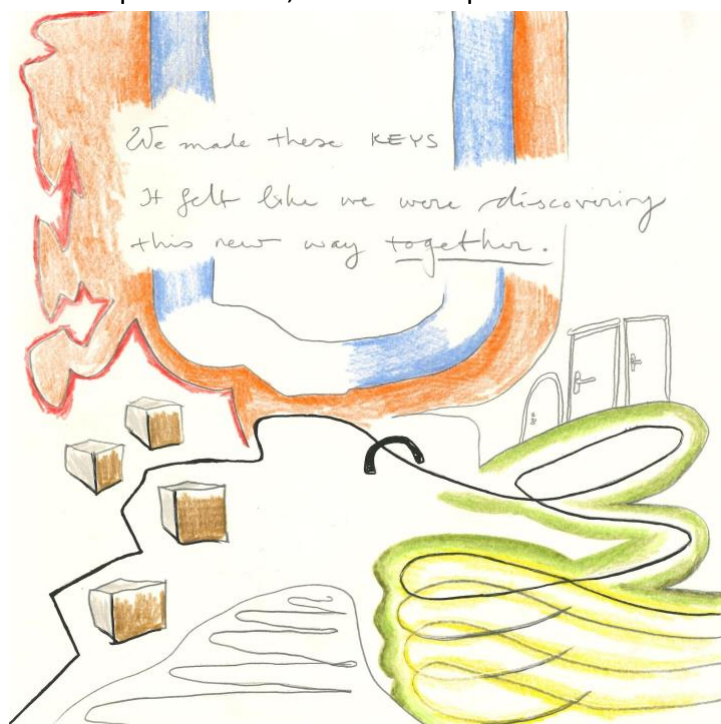 We made these KEYS
It felt like we were discovering
this new way together.